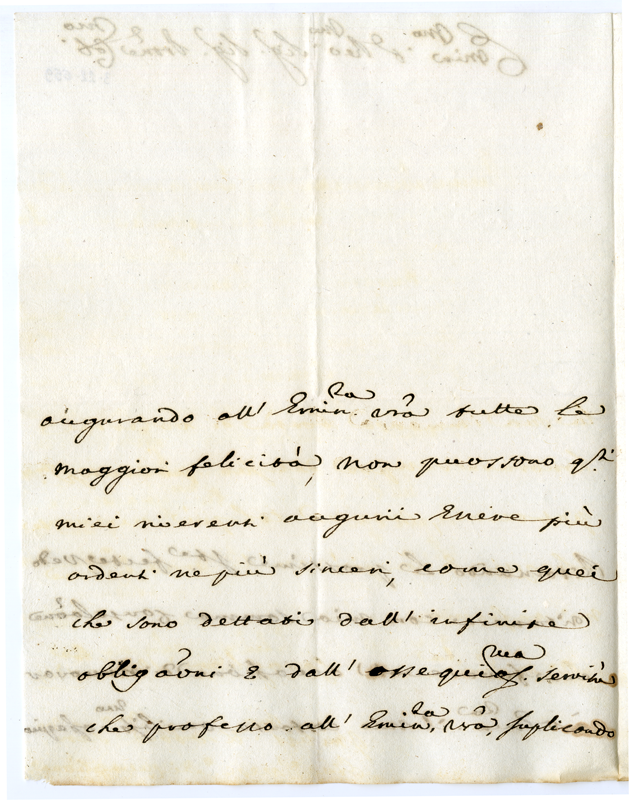 augurando all' Emin.za vrã tutte le
maggiori felicità, non puossono q.ti
miei riverenti augurii Essere più
ardenti ne più sinceri, come quei
che sono dettati dall' infinite
obligãoni e dall' ossequios.ma servitù
che professo all' Emin.za vrã, suplicando